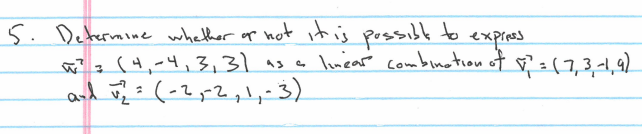 5. Determine whether or not it is possible to express
w⃗ = (4,-4,3,3) as a linear combination of v⃗₁ = (7,3,-1,9)
and v⃗₂ = (-2,-2,1,-3)